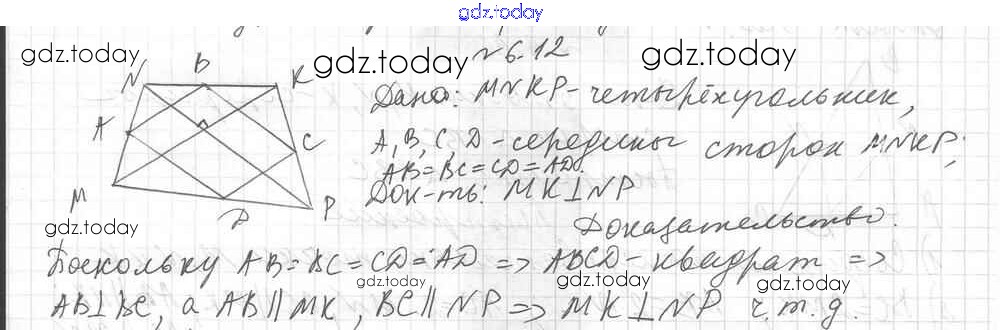 gdz.today
№ 6.12
gdz.today gdz.today gdz.today
N B K
Дано: MNKP - четырёхугольник,
A C
A, B, C, D - середины сторон MNKP;
AB = BC = CD = AD.
M
Док-ть: MK ⊥ NP
D P
gdz.today gdz.today
Доказательство.
Поскольку AB = BC = CD = AD => ABCD - квадрат =>
gdz.today gdz.today
AB ⊥ BC, а AB || MK, BC || NP => MK ⊥ NP ч.т.д.